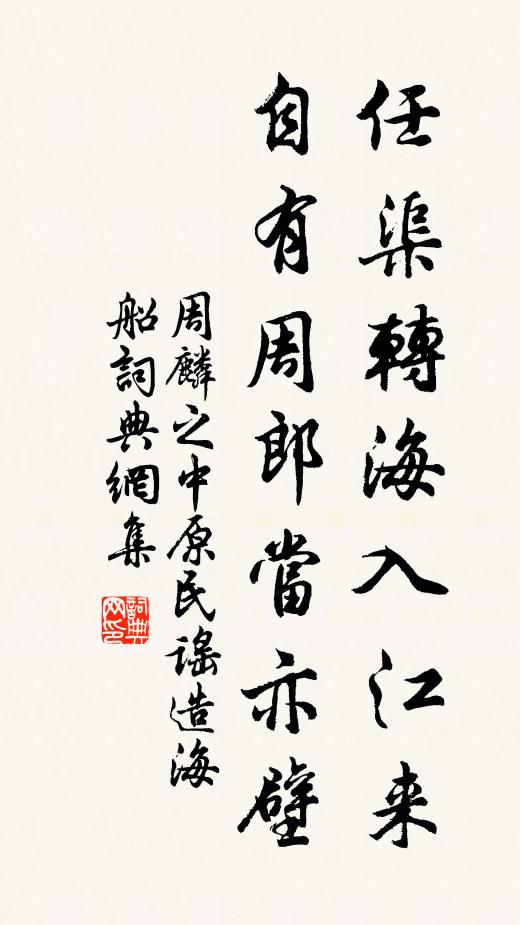 任渠轉海入江来
自有周郎當亦壁
周麟之中原民謠造海
船詞典網集
詞典网印